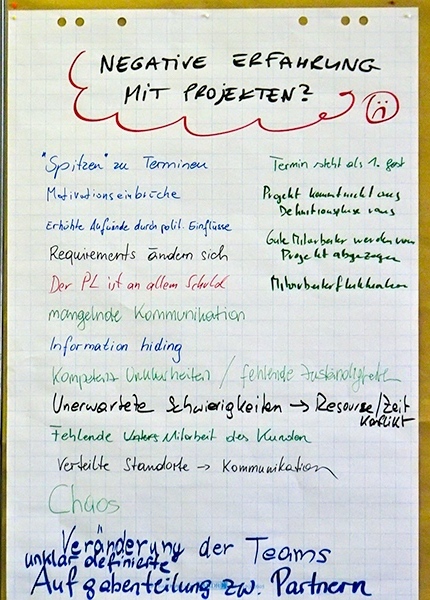 NEGATIVE ERFAHRUNG
MIT PROJEKTEN?
"Spitzen" zu Terminen
Motivationseinbrüche
Erhöhte Aufwände durch polit. Einflüsse
Requirements ändern sich
Der PL ist an allem Schuld
mangelnde Kommunikation
Information hiding
Kompetenz Unklarheiten / fehlende Zuständigkeiten
Unerwartete Schwierigkeiten → Resource/Zeit
Konflikt
Fehlende Mitarbeit des Kunden
Verteilte Standorte → Kommunikation
Chaos
Veränderung der Teams
unklar definierte
Aufgabenteilung zw. Partnern
Termin steht als 1. fest
Projekt kommt nicht aus
Definitionsphase raus
Gute Mitarbeiter werden vom
Projekt abgezogen
Mitarbeiterfluktuation